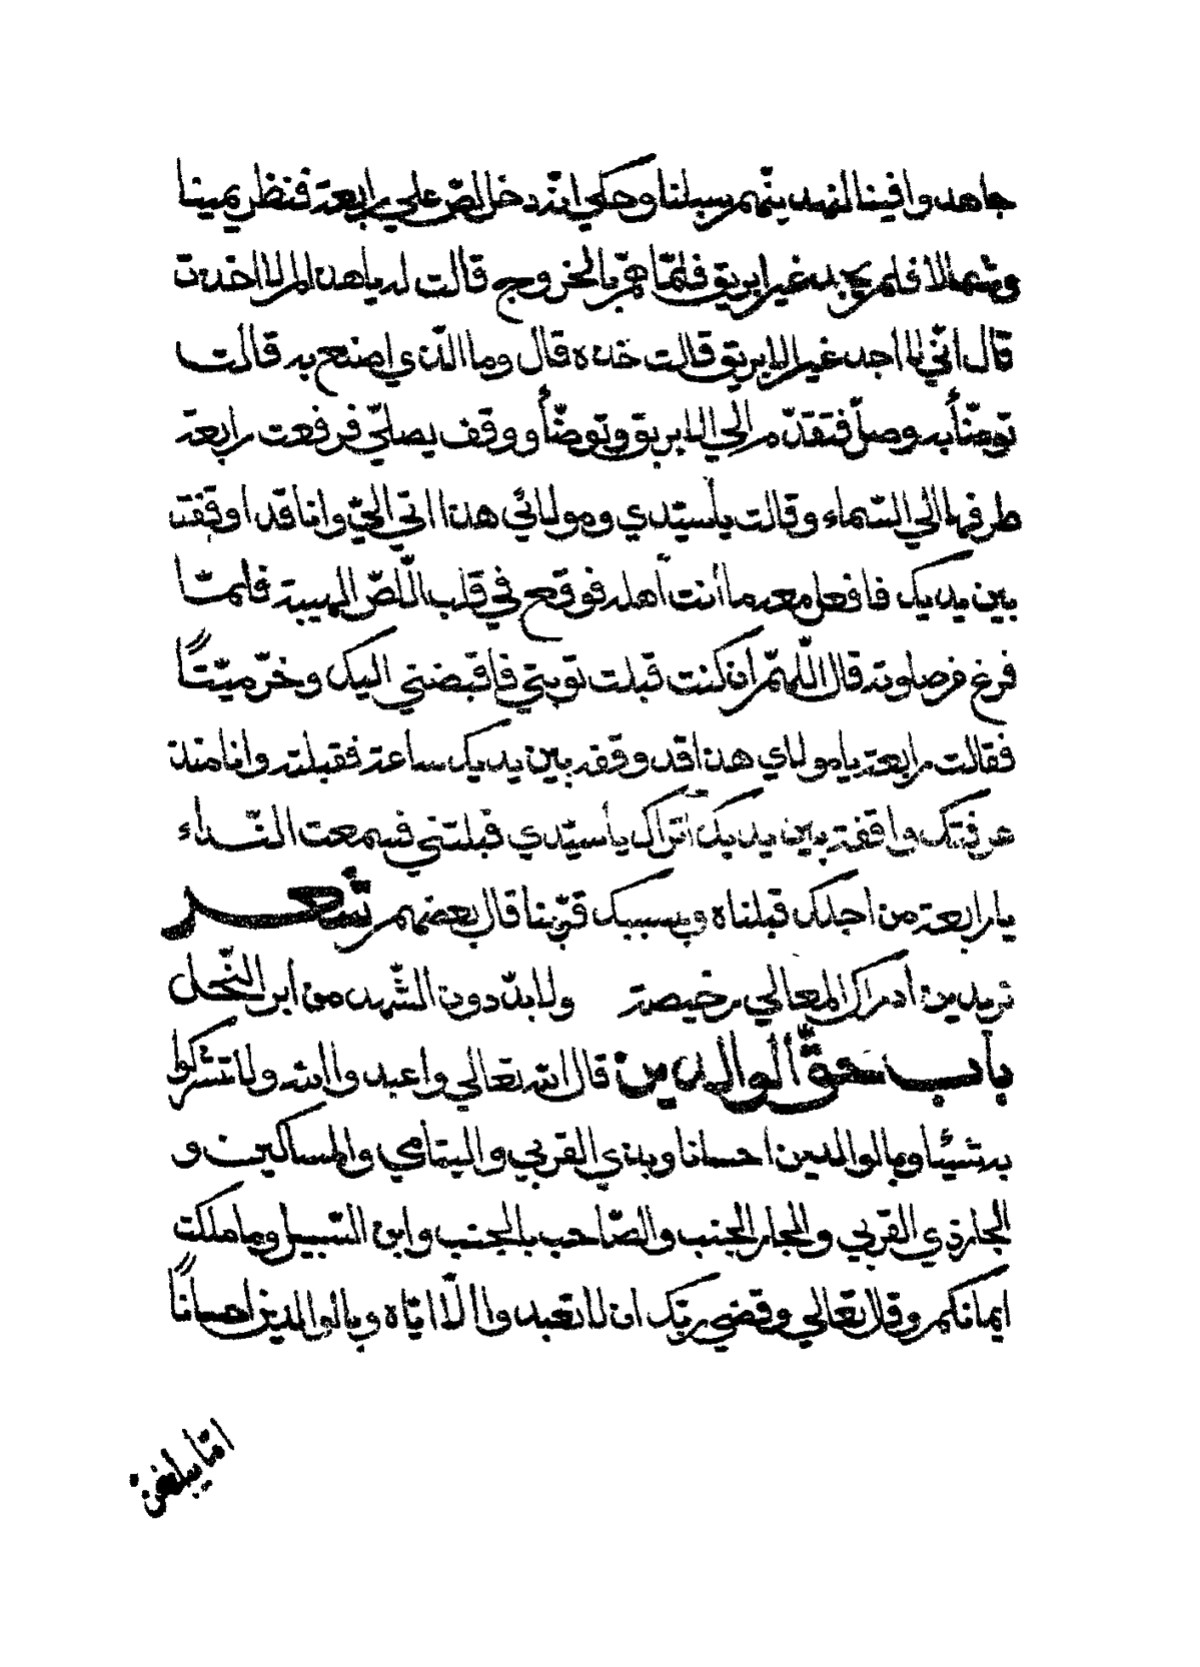 جاهدوا فينا لنهدينّهم سبلنا وحكي انّه دخل لصّ علي رابعة فنظر يمينا
وشمالا فلم يجد غير ابريق فلمّا همّ بالخروج قالت له يا هذا لم لا اخذت
قال انّي لا اجد غير الابريق قالت خذه قال وما الّذي اصنع به قالت
توضّأ به وصلّ فتقدّم الي الابريق وتوضّأ ووقف يصلّي فرفعت رابعة
طرفها الي السّماء وقالت يا سيّدي ومولائي هذا اتي اليّ وانا قد اوقفته
بين يديك فافعل معه ما أنت أهله فوقع في قلب اللّصّ الهيبة فلمّا
فرغ من صلوته قال اللّهمّ أن كنت قبلت توبتي فاقبضني اليك وخرّ ميّتاً
فقالت رابعة يا مولاي هذا قد وقف بين يديك ساعة فقبلته وانا منذ
عرفتك واقفة بين يديك أتراك يا سيّدي قبلتني فسمعت النّداء
يا رابعة من اجلك قبلناه وبسببك قرّبنا قال بعضهم شعر
تريدين أدراك المعالي رخيصة ولا بدّ دون الشّهد من ابر النّحل
باب حقّ الوالدين قال الله تعالي واعبدوا الله ولا تشركوا
به شيئا وبالوالدين احسانا وبذي القربي واليتامي والمساكين و
الجار ذي القربي والجار الجنب والصّاحب بالجنب وابن السّبيل وما ملكت
ايمانكم وقال تعالي وقضي ربّك ان لا تعبدوا الّا ايّاه وبالوالدين احساناً
امّا يبلغنّ